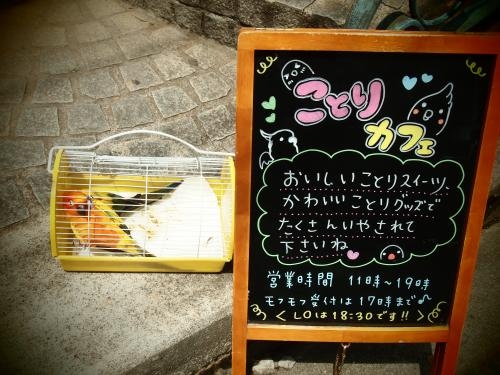 ことり
カフェ
おいしいことりスイーツ、
かわいいことりグッズで
たくさんいやされて
下さいね
営業時間 11時~19時
モフモフ受付は17時まで♪
< LOは18:30です!! >